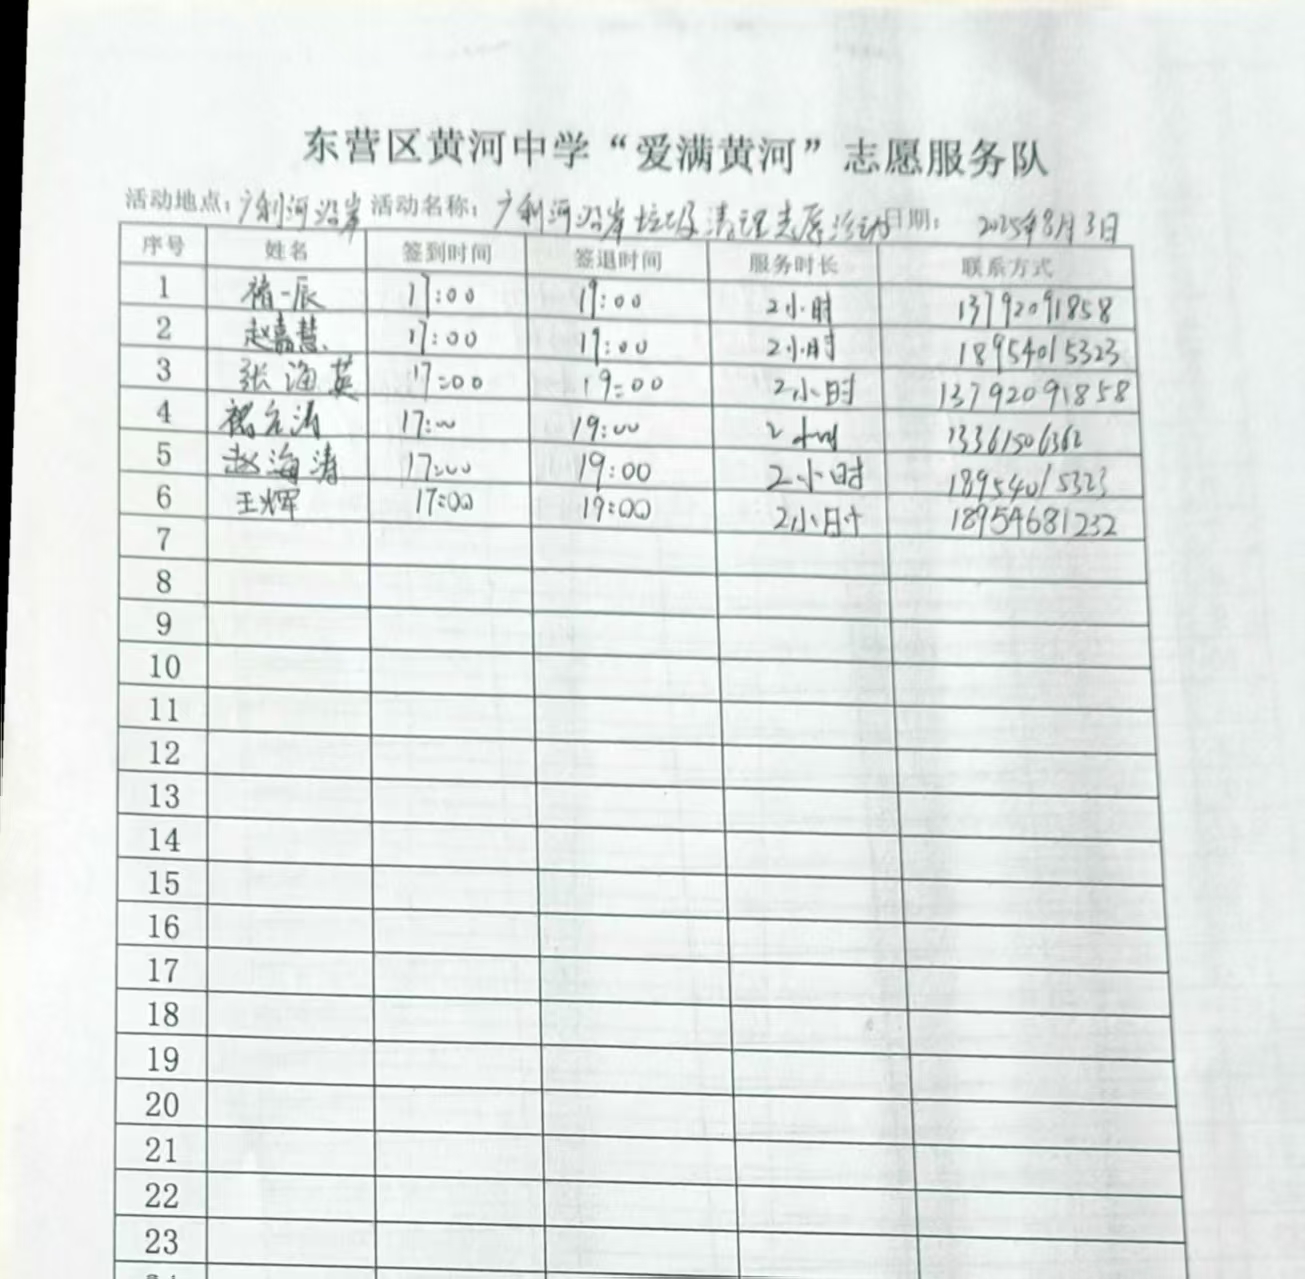 东营区黄河中学“爱满黄河”志愿服务队
活动地点：广利河沿岸 活动名称：广利河沿岸垃圾清理志愿活动 日期： 2025年8月3日
序号 姓名 签到时间 签退时间 服务时长 联系方式
1 褚一辰 17:00 19:00 2小时 13792091858
2 赵嘉慧 17:00 19:00 2小时 18954015323
3 张海英 17:00 19:00 2小时 13792091858
4 17:00 19:00 2小时 13361506362
5 赵海涛 17:00 19:00 2小时 18954015323
6 王辉 17:00 19:00 2小时 18954681232
7
8
9
10
11
12
13
14
15
16
17
18
19
20
21
22
23